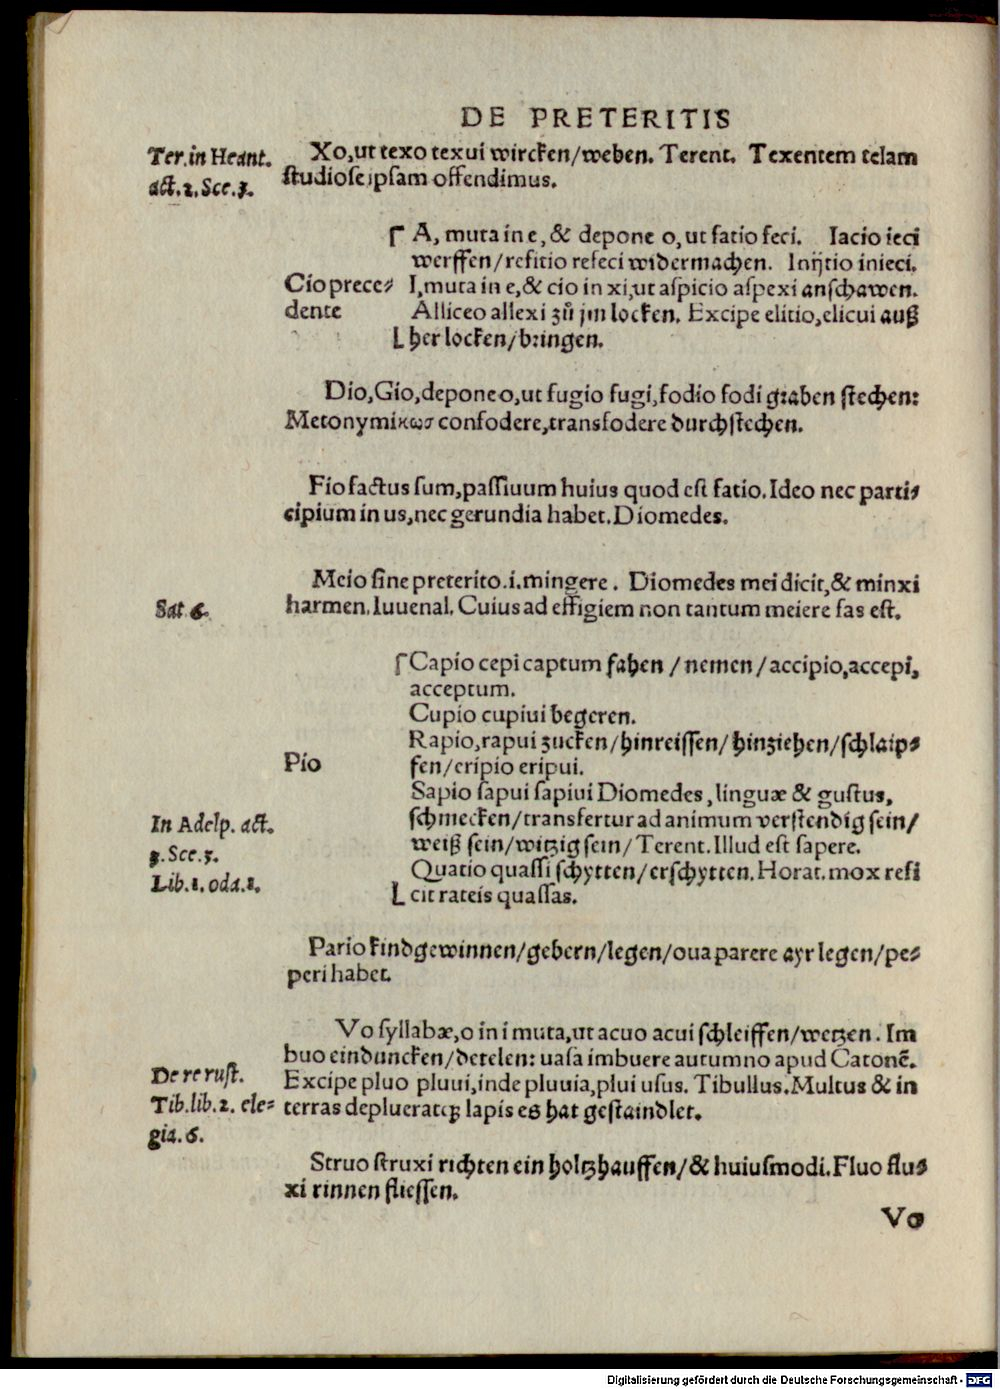 DE PRETERITIS
Ter.in Heaut.
act.2.Sce.3.
Xo,ut texo texui wircken/weben. Terent. Texentem telam
studiose ipsam offendimus.
A, muta in e, & depone o, ut fatio feci. Iacio ieci
werffen/refitio refeci widermachen. Inijtio inieci.
Cio prece⸗
dente
I,muta in e,& cio in xi,ut aspicio aspexi anschawen.
Alliceo allexi zů jm locken. Excipe elitio,elicui auß
her locken/bringen.
Dio,Gio,depone o,ut fugio fugi,fodio fodi graben stechen:
Metonymiκωσ confodere,transfodere durchstechen.
Fio factus sum,passiuum huius quod est fatio.Ideo nec parti⸗
cipium in us,nec gerundia habet.Diomedes.
Meio sine preterito.i.mingere. Diomedes mei dicit,& minxi
Sat.6.
harmen.Iuuenal.Cuius ad effigiem non tantum meiere fas est.
Capio cepi captum fahen/nemen/accipio,accepi,
acceptum.
Cupio cupiui begeren.
Rapio,rapui zucken/hinreissen/hinziehen/schlaipf⸗
Pio
fen/eripio eripui.
Sapio sapui sapiui Diomedes,linguæ & gustus,
In Adelp. act.
3.Sce.3.
schmecken/transfertur ad animum verstendig sein/
weiß sein/witzig sein/Terent.Illud est sapere.
Lib.1.oda.1.
Quatio quassi schytten/erschytten.Horat.mox refi
cit rateis quassas.
Pario kindgewinnen/gebern/legen/oua parere ayr legen/pe⸗
peri habet.
Vo syllabæ,o in i muta,ut acuo acui schleiffen/wetzen. Im
buo einduncken/detelen: uasa imbuere autumno apud Catonẽ.
De re rust.
Excipe pluo pluui,inde pluuia,plui usus. Tibullus.Multus & in
Tib.lib.2. ele⸗
gia.6.
terras deplueratqꝫ lapis es hat gestaindlet.
Struo struxi richten ein holtzhauffen/& huiusmodi.Fluo flu⸗
xi rinnen fliessen.
Vo
Digitalisierung gefördert durch die Deutsche Forschungsgemeinschaft - DFG